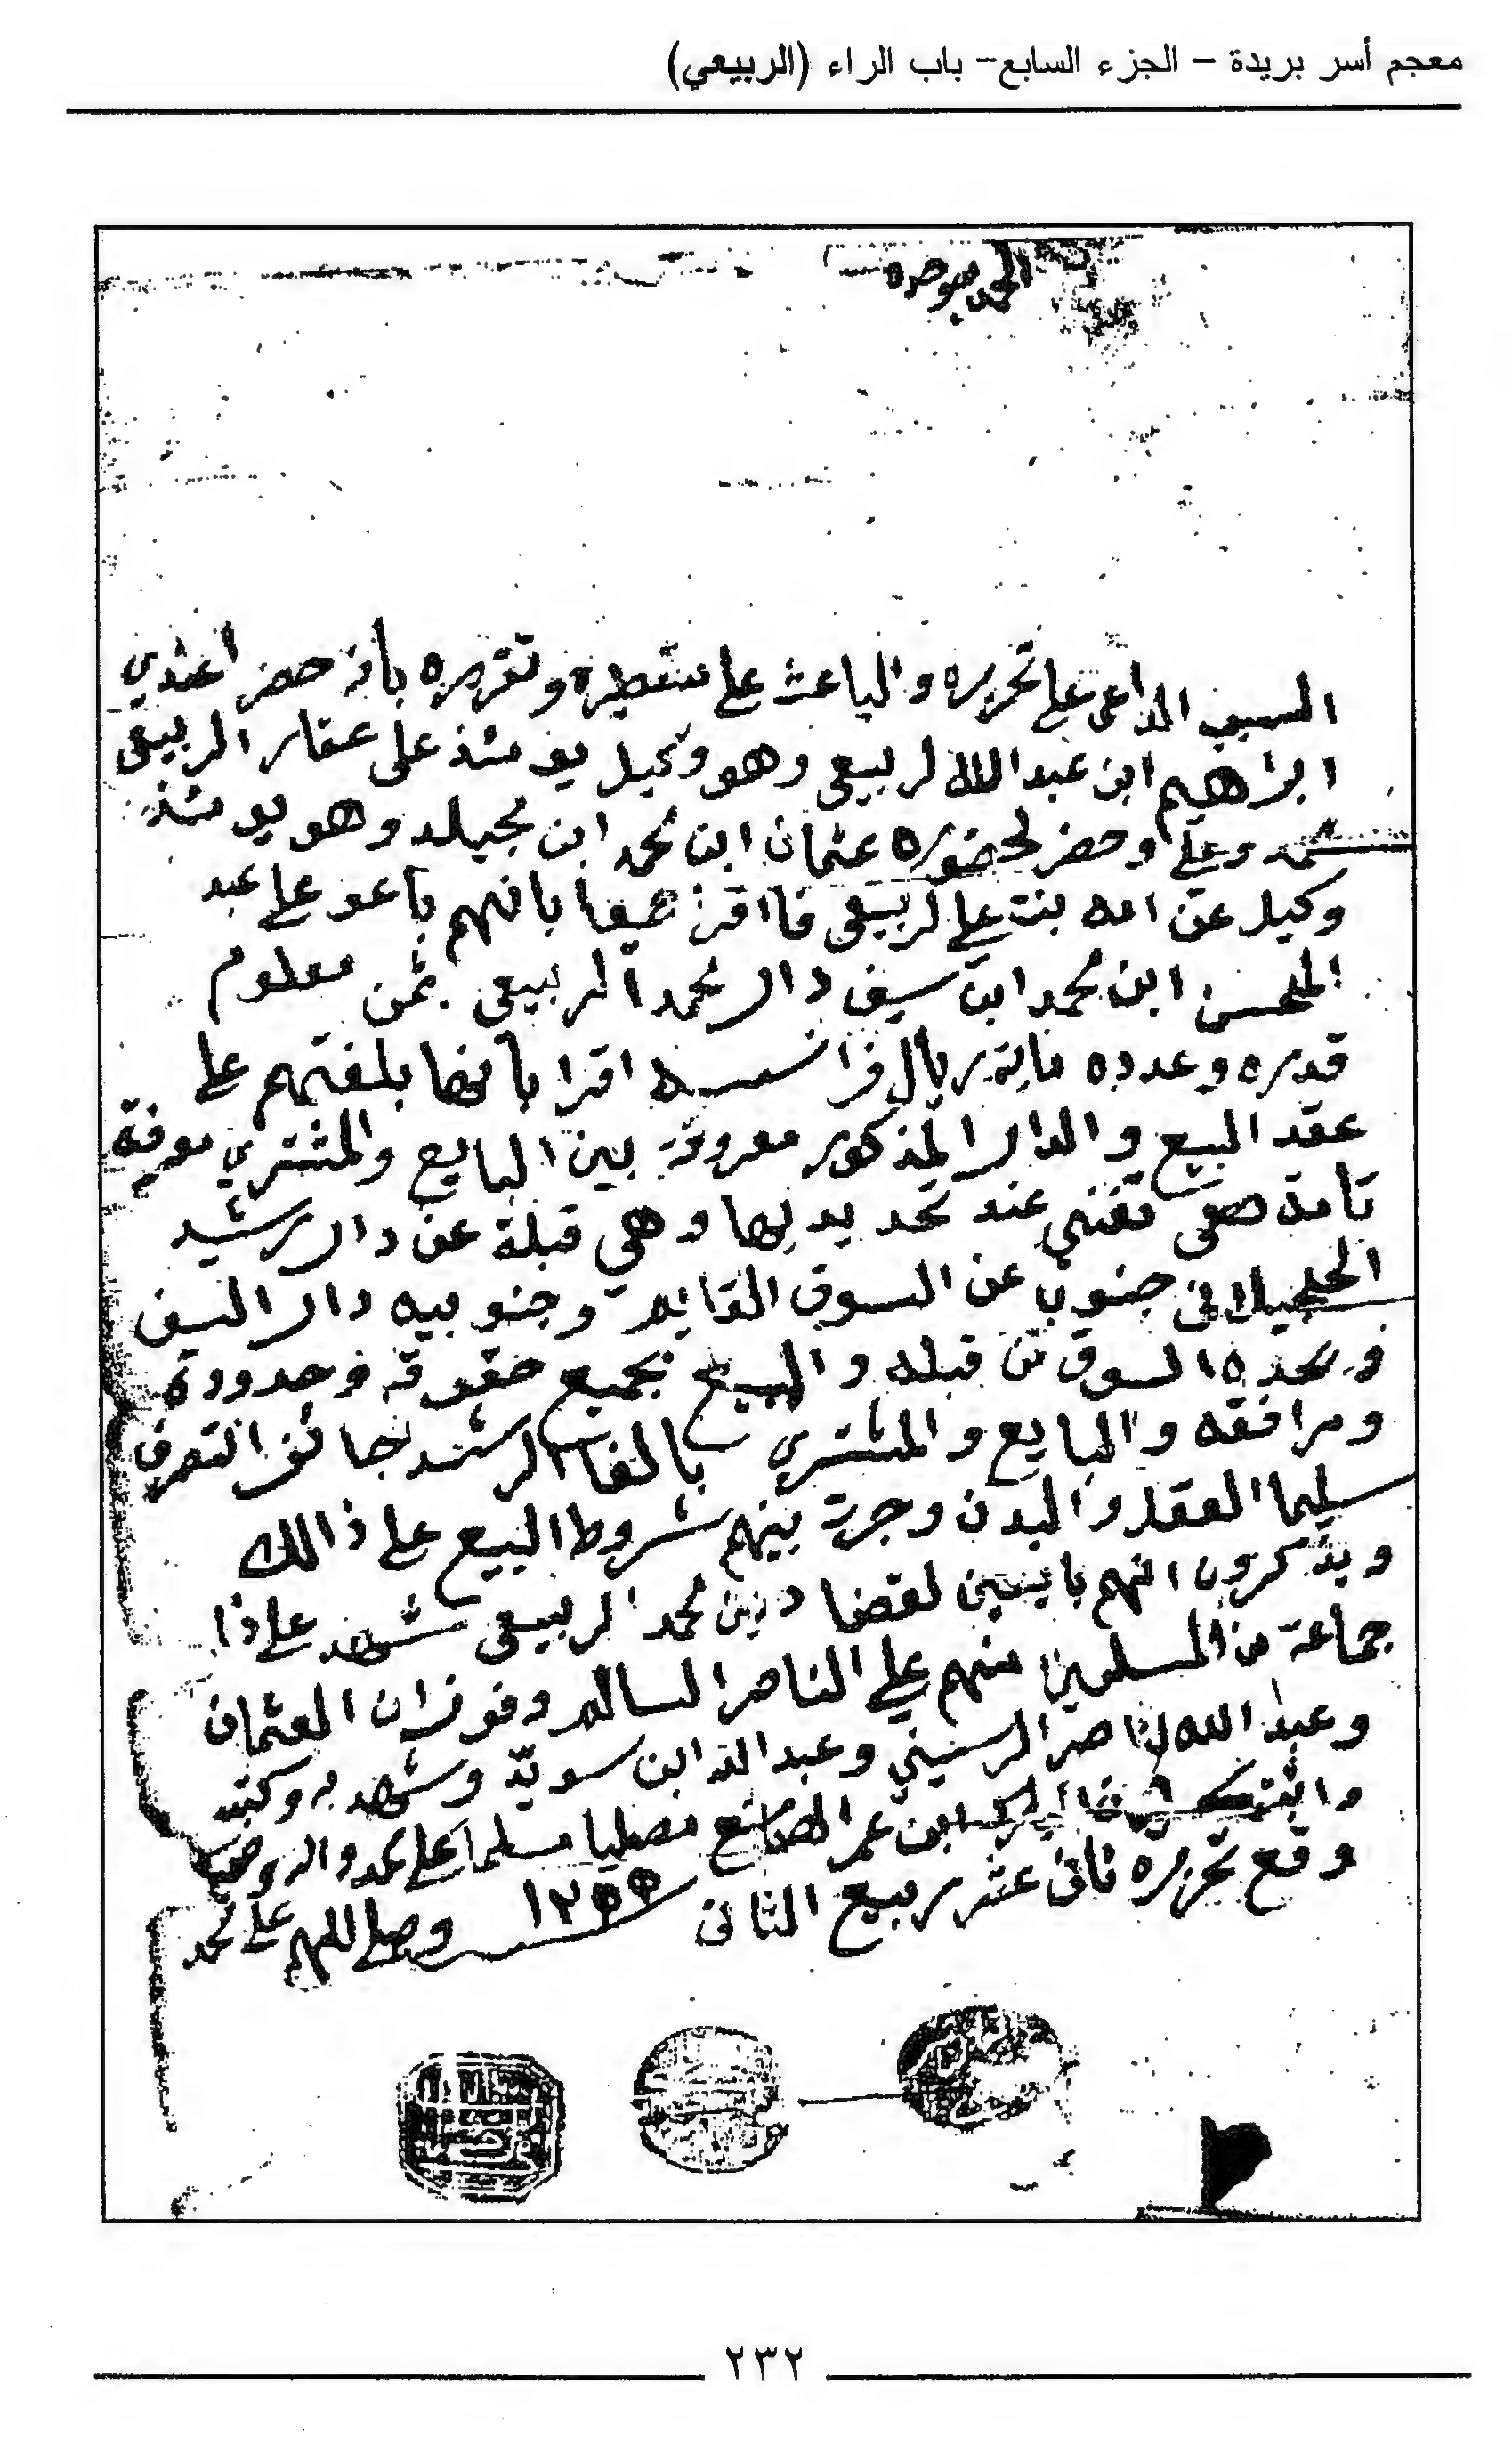 معجم أسر بريدة – الجزء السابع– باب الراء (الربيعي)
الحمد لله وحده
السبب الداعي على تحريره والباعث على تسطيره وتقريره بانه حضر اعندي
ابراهيم ابن عبد الله الربيعي وهو وكيل يومئذ على عقار الربيعي
محمد وعلي وحضر لحضوره عثمان ابن محمد ابن بجيلد وهو يومئذ
وكيل عن امه بنت علي الربيعي فا اقر جميعا بانهم باعو على عبد
المحسن ابن محمد ابن سيف دار محمد الربيعي بثمن معلوم
قدره وعدده ماية ريال فرانسه اقرا بانها بلغتهم على
عقد البيع والدار المذكور معروفة بين البايع والمشتري معرفة
تامة تغني عند تحديدها وهي قبلة عن دار رشيد
الحجيلاني جنوب عن السوق القايم وجنوبيه دار السيف
ويحده السوق من قبله والمبيع بجميع حقوقه وحدوده
ومرافقه والبايع والمشتري بالغا الرشد جائز التصرف
سليما العقل والبدن وجرت بينهم شروط البيع على ذالك
ويذكرون انهم بايعين لقضا دين محمد الربيعي شهد على ذا
جماعة من المسلمين منهم علي الناصر السالم وفوزان العثمان
وعبد الله الناصر الرسيني وعبد الله ابن سويد وشهد به وكتبه
واثبته ابن عمر الصانع مصليا مسلما على محمد واله وصحبه
وقع تحريره ثاني عشر ربيع الثاني ١٢٥٥ وصلى اللهم على محمد
٢٣٢